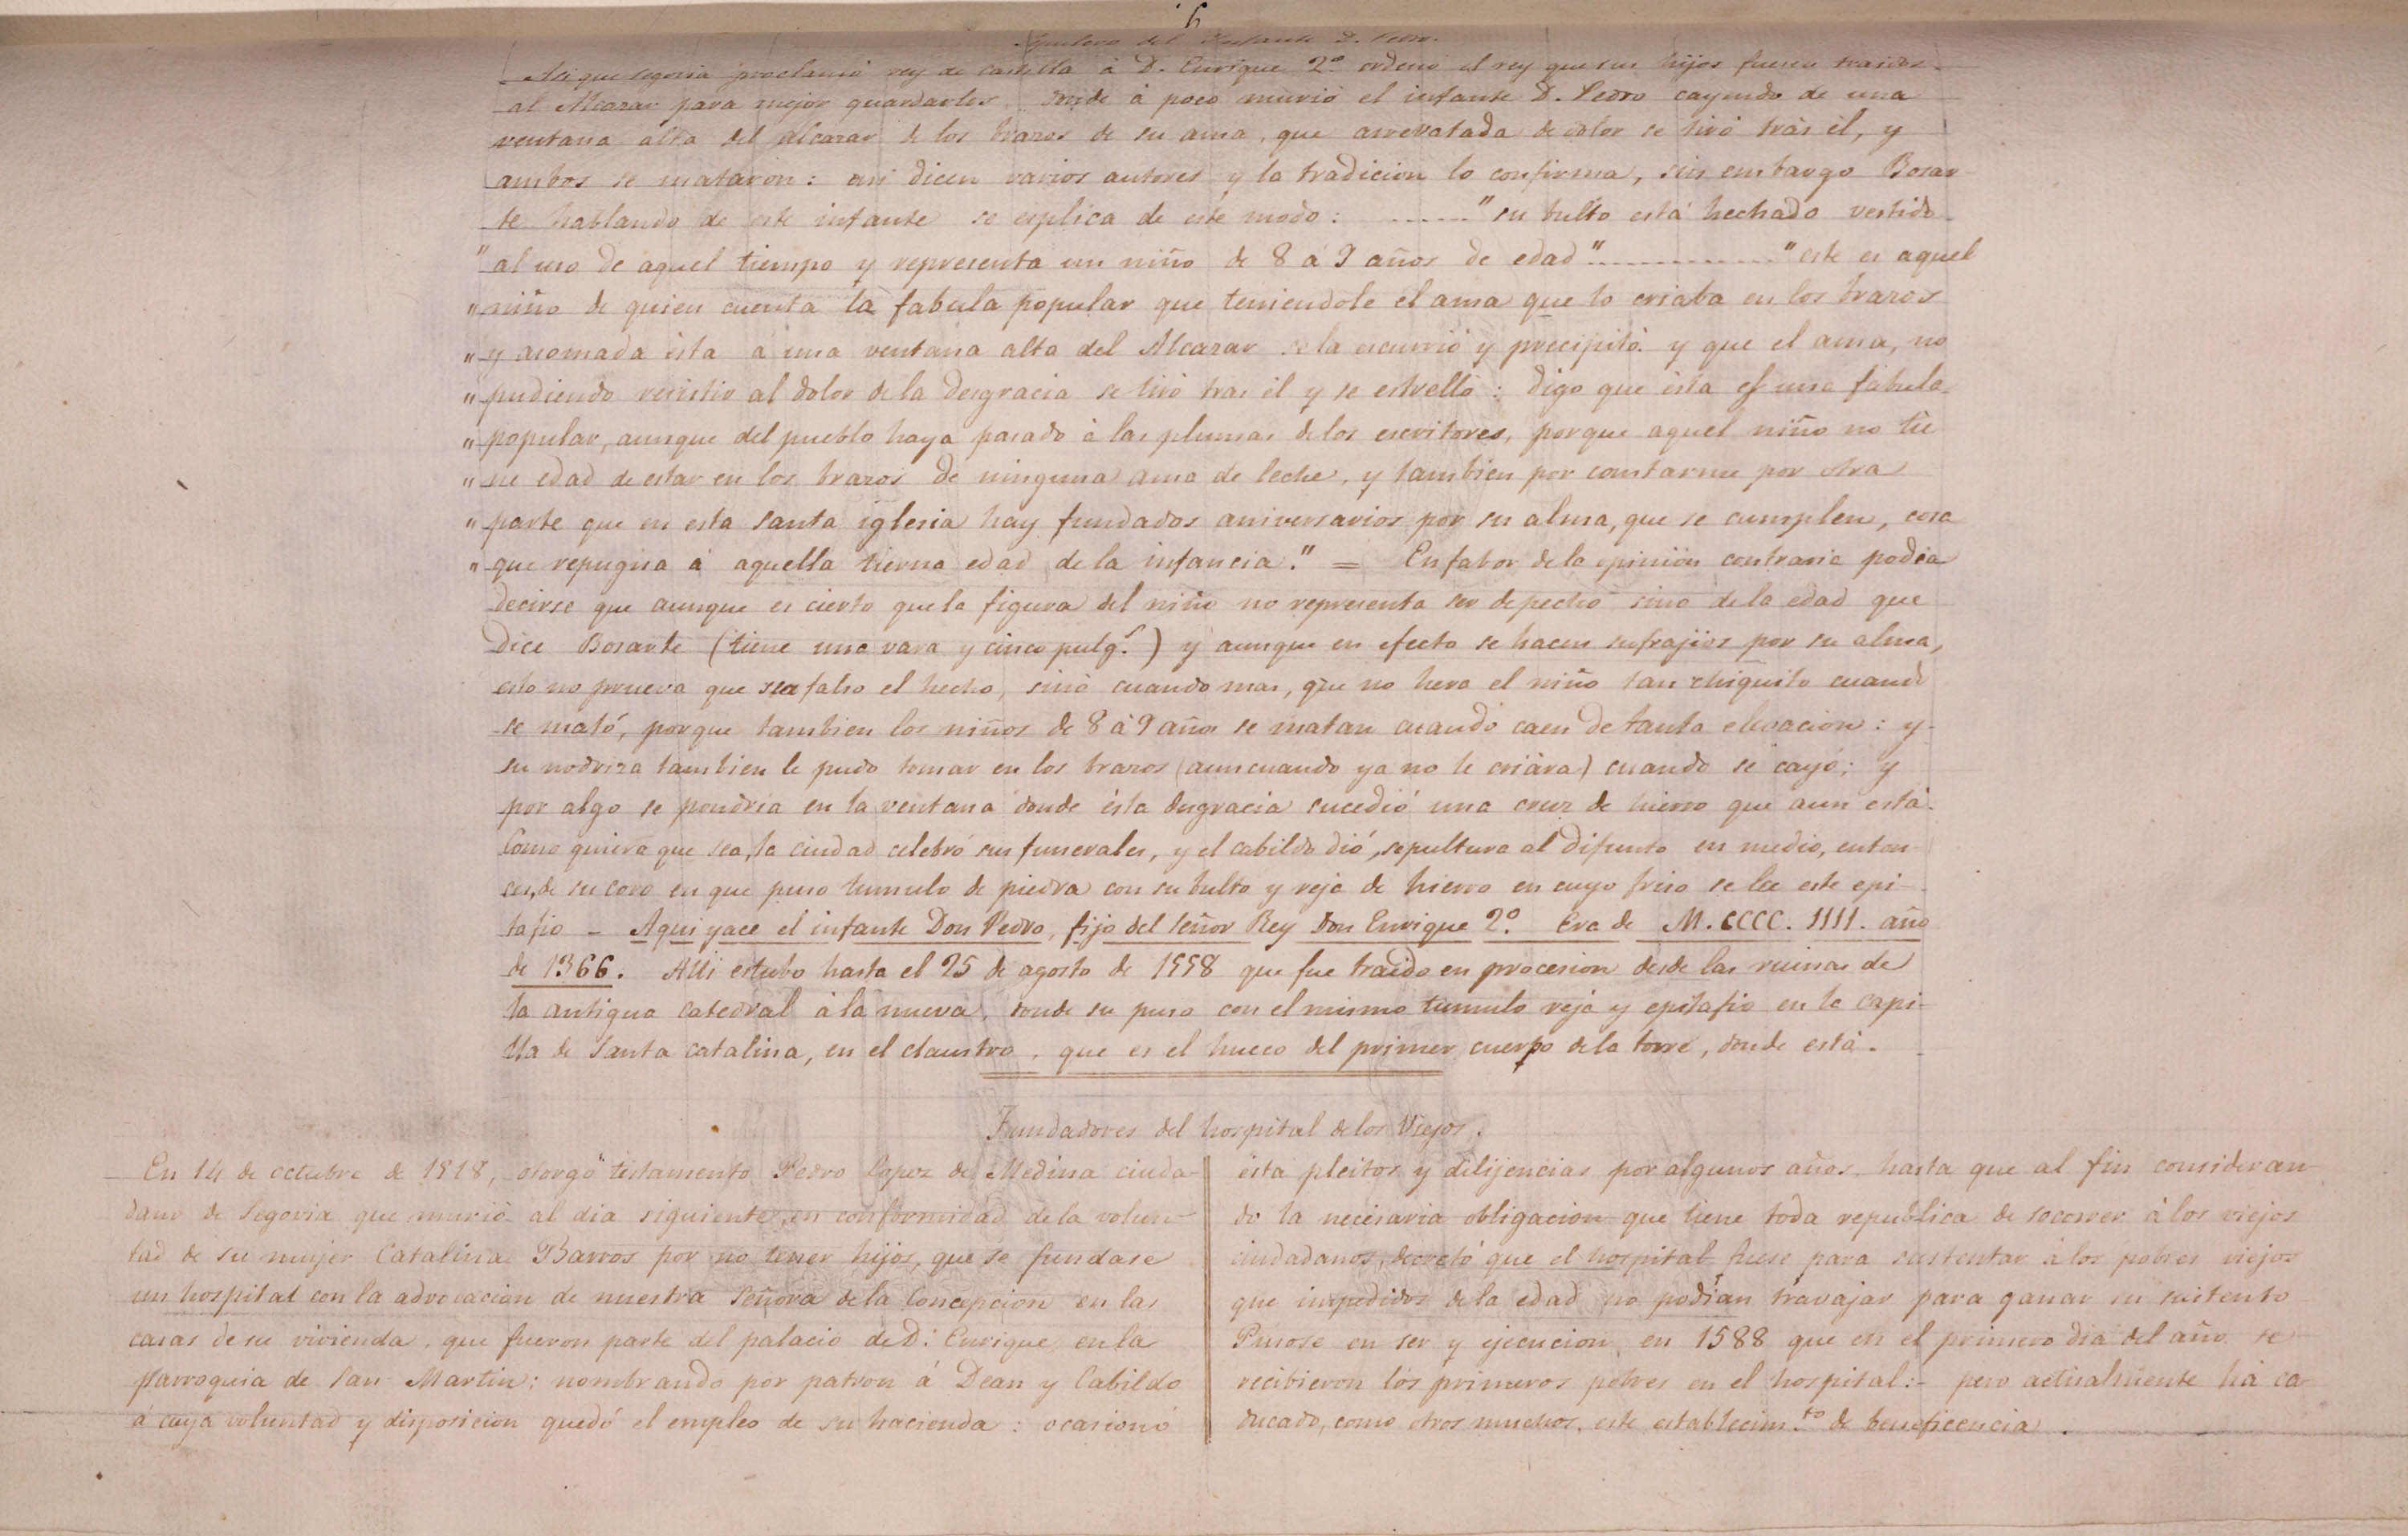 6
Sepulcro del Infante D. Pedro.
Asi que Segovia proclamó rey de Castilla à D. Enrique 2º ordenó el rey que sus hijos fuesen traidos
al Alcazar para mejor guardarlos donde à poco murió el infante D. Pedro cayendo de una
ventana alta del alcazar de los brazos de su ama, que arrevatada de dolor se tiró tràs èl, y
ambos se mataron: asi dicen varios autores y la tradicion lo confirma, sin embargo Bosar-
te hablando de este infante se esplica de este modo: ------ " su bulto està hechado vestido
" al uso de aquel tiempo y representa un niño de 8 à 9 años de edad " ------------- " este es aquel
" niño de quien cuenta la fabula popular que teniendole el ama que lo criaba en los brazos
" y asomada èsta à una ventana alta del Alcazar se la escurrió y precipitó. y que el ama, no
" pudiendo resistir al dolor de la desgracia se tiró tras èl y se estrelló: digo que èsta es una fabula
" popular, aunque del pueblo haya pasado à las plumas de los escritores, porque aquel niño no tie
" ne edad de estar en los brazos de ninguna ama de leche, y tambien por constarme por otra
" parte que en esta santa iglesia hay fundados aniversarios por su alma, que se cumplen, cosa
" que repugna à aquella tierna edad de la infancia." = En fabor de la opinion contraria podia
decirse que aunque es cierto que la figura del niño no representa ser de pecho sino de la edad que
dice Bosarte (tiene una vara y cinco pulg.s) y aunque en efecto se hacen sufrajios por su alma,
esto no prueva que sea falso el hecho, sinó cuando mas, que no hera el niño tan chiquito cuando
se mató, porque tambien los niños de 8 à 9 años se matan cuando caen de tanta elevacion: y
su nodriza tambien le pudo tomar en los brazos (aun cuando ya no le criàra) cuando se cayó; y
por algo se pondria en la ventana donde èsta desgracia sucedió una cruz de hierro que aun està.
Como quiera que sea, la ciudad celebró sus funerales, y el cabildo dió sepultura al difunto en medio, enton-
ces, de su coro en que puso tumulo de piedra con su bulto y reja de hierro en cuyo friso se lee este epi-
tafio - Aqui yace el infante Don Pedro, fijo del señor Rey Don Enrique 2º. Era de M.CCCC.IIII. año
de 1366. Alli estubo hasta el 25 de agosto de 1558 que fue traido en procesion desde las ruinas de
la antigua catedral à la nueva, donde se puso con el mismo tumulo reja y epitafio en la capi-
lla de Santa Catalina, en el claustro, que es el hueco del primer cuerpo de la torre, donde està.
Fundadores del hospital de los Viejos.
En 14 de octubre de 1518, otorgó testamento Pedro Lopez de Medina ciuda-
dano de Segovia que murió al dia siguiente, en conformidad de la volun-
tad de su mujer Catalina Barros por no tener hijos, que se fundase
un hospital con la advocacion de nuestra Señora de la Concepcion en las
casas de su vivienda, que fueron parte del palacio de D. Enrique, en la
parroquia de San Martin: nombrando por patron á Dean y Cabildo
á cuya voluntad y disposicion quedó el empleo de su hacienda: ocasionó
èsta pleitos y dilijencias por algunos años, hasta que al fin consideran-
do la necesaria obligacion que tiene toda republica de socorrer à los viejos
ciudadanos, decretó que el hospital fuese para sustentar à los pobres viejos
que impedidos de la edad no podian travajar para ganar su sustento
Pusose en ser y ejecucion, en 1588 que en el primero dia del año se
recibieron los primeros pobres en el hospital:- pero actualmente hà ca-
ducado, como otros muchos, este establecim.to de beneficencia.